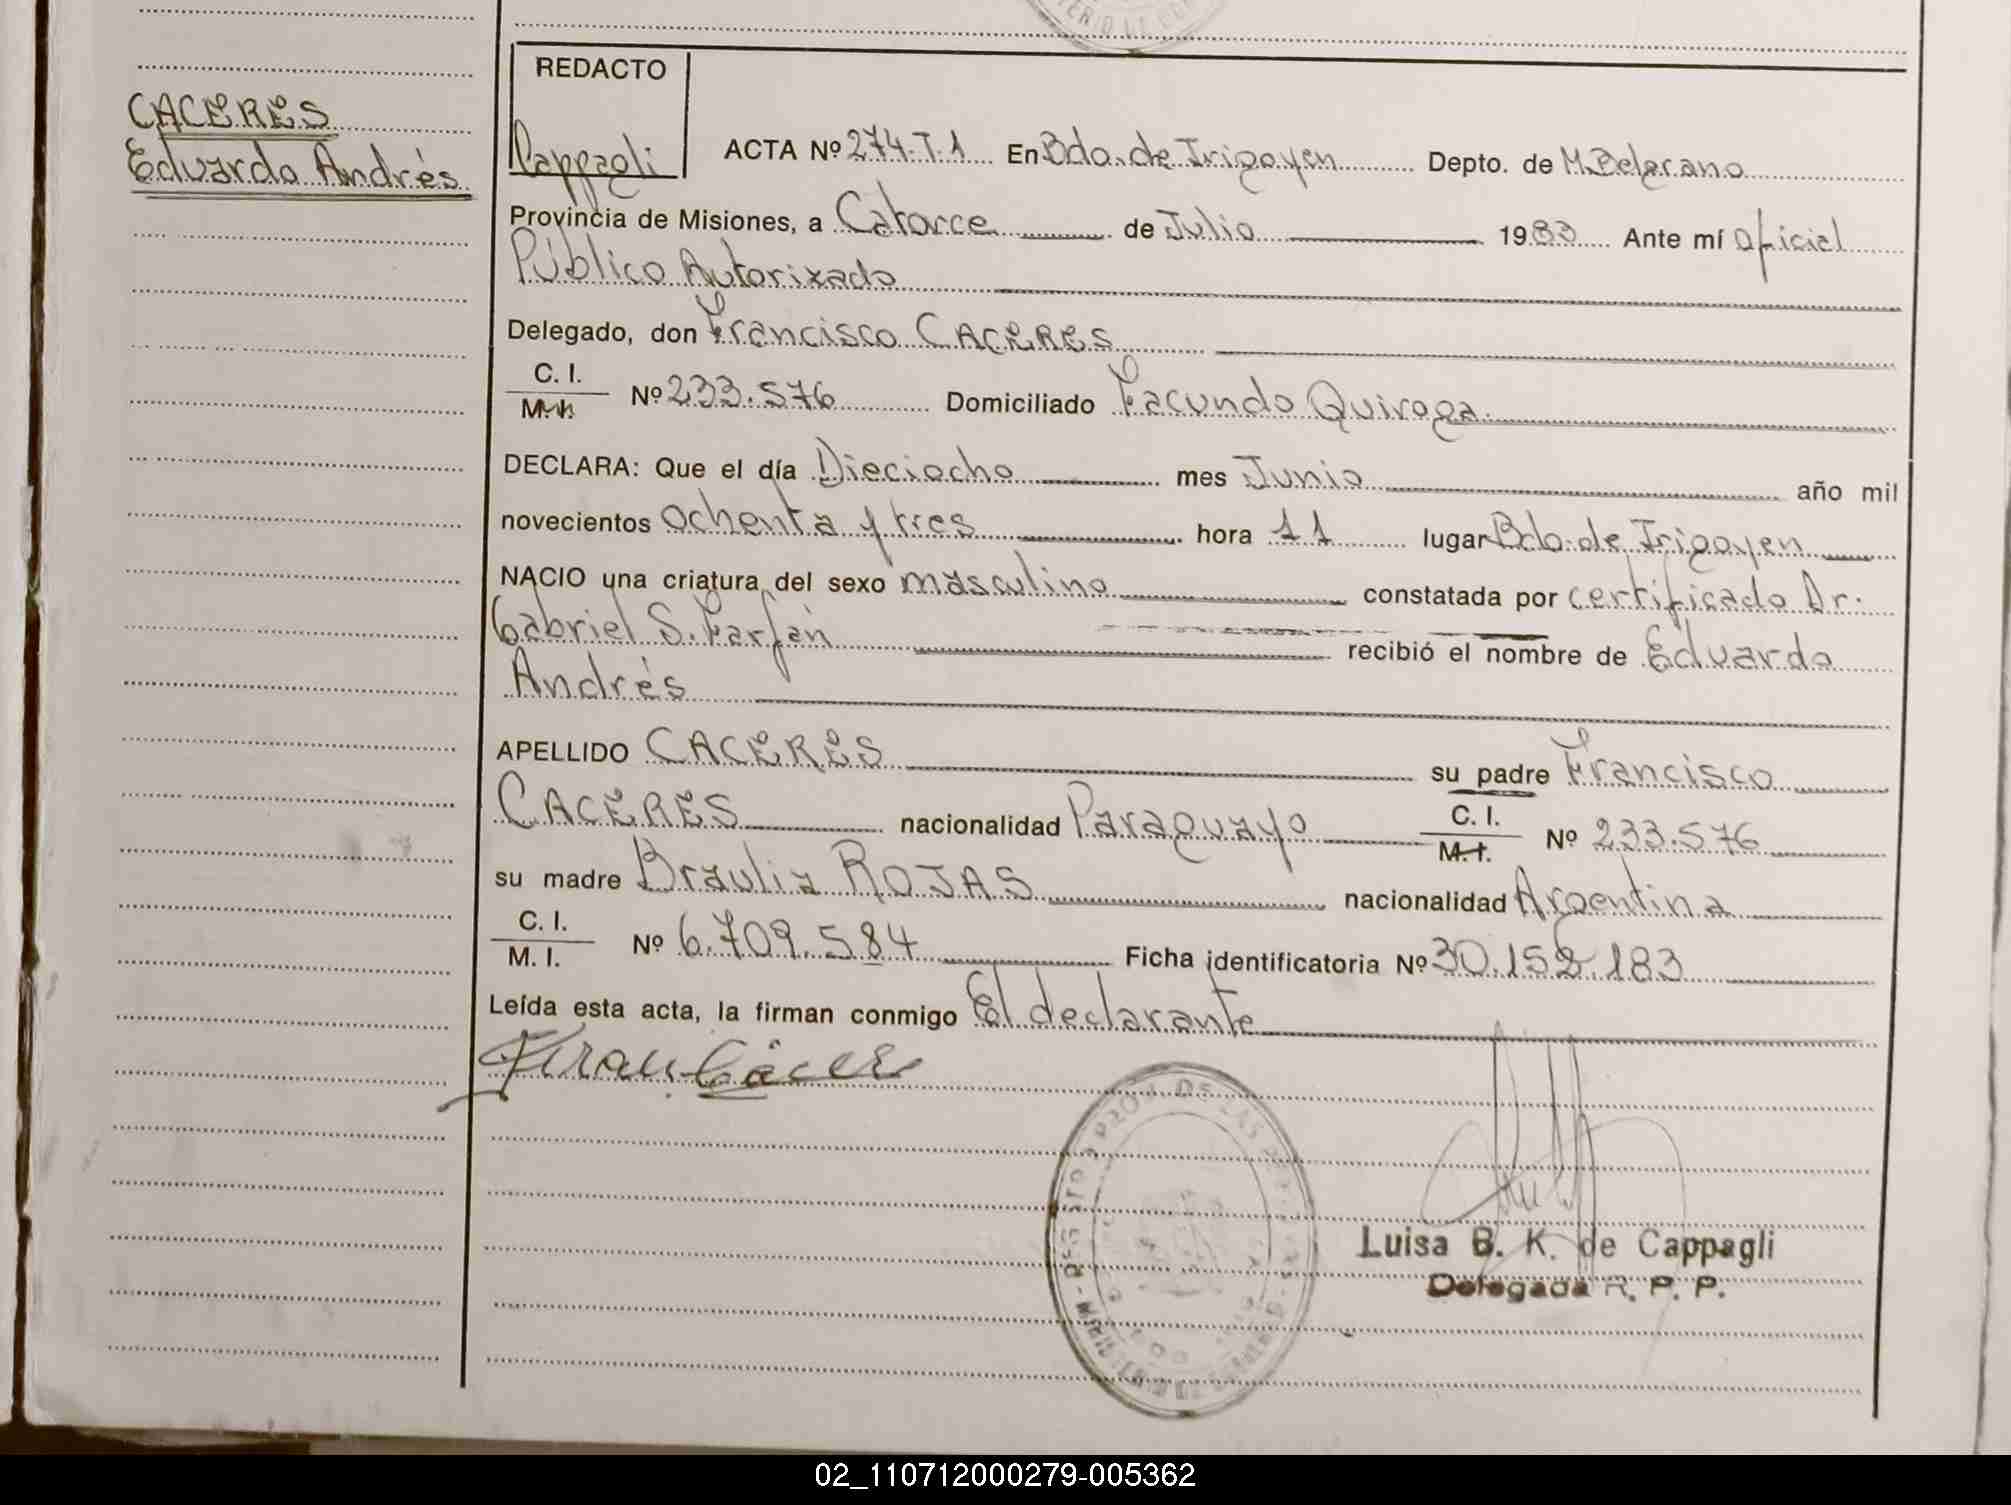 CACERES
Eduardo Andrés
REDACTO
Cappagli
ACTA Nº 274.T.1 En Bdo. de Irigoyen Depto. de M. Belgrano
Provincia de Misiones, a Catorce de Julio 1983 Ante mí oficial
Público Autorizado
Delegado, don Francisco CACERES
C. I.
M. I. Nº 233.576 Domiciliado Facundo Quiroga
DECLARA: Que el día Dieciocho mes Junio año mil
novecientos ochenta y tres hora 11 lugar Bdo. de Irigoyen
NACIO una criatura del sexo masculino constatada por certificado Dr.
Gabriel S. Farfán recibió el nombre de Eduardo
Andrés
APELLIDO CACERES su padre Francisco
CACERES nacionalidad Paraguayo C. I.
M. I. Nº 233.576
su madre Braulia ROJAS nacionalidad Argentina
C. I.
M. I. Nº 6.709.584 Ficha identificatoria Nº 30.152.183
Leída esta acta, la firman conmigo El declarante
Luisa B. K. de Cappagli
Delegada R. P. P.
02_110712000279-005362